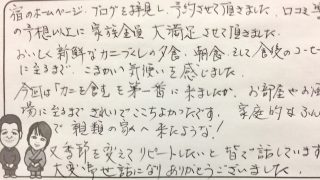 宿のホームページ・ブログを拝見し、予約させて頂きました。口コミ
の予想以上に家族全員 大満足させて頂きました。
おいしく新鮮なカニづくしの夕食、朝食、そして食後のコーヒー
に至るまで、こまかい気使いを感じました。
今回は「カニを食む」を第一番に来ましたが、お部屋やお
場に至るまできれいでここちよかったです。家庭的なふん
で親類の家へ来たような!
又季節を変えてリピートしたいと皆で話しています
大変お世話になりありがとうございました。